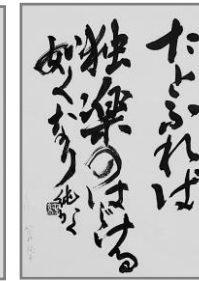 たとふれば
独楽のはぢける
如くなり